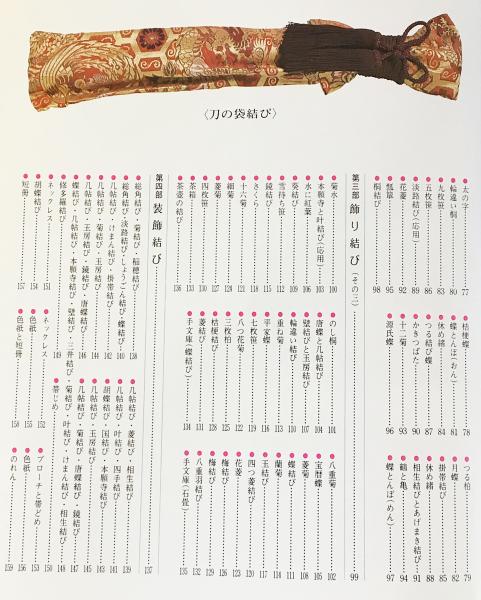 〈刀の袋結び〉
●太の字………77
●桔梗蝶………78
●つる柏………79
●輪違い桐………80
●蝶とんぼ(おん)………81
●月蝶………82
●九枚笹………83
●休め緒………84
●掛帯結び………85
●五枚笹………86
●つる結び蝶………87
●休め緒………88
●淡路結び(応用)………89
●かきつばた………90
●相生結びとあげまき結び………91
●花菱………92
●十二菊………93
●鶴と亀………94
●瓢箪………95
●源氏蝶………96
●蝶とんぼ(めん)………97
●桐結び………98
第三部 飾り結び(その二)………99
●菊水………100
●のし桐………101
●八重菊………102
●本願寺と叶結び(応用)………103
●唐蝶と几帳結び………104
●宝暦蝶………105
●水に紅葉………106
●壁結びと玉房結び………107
●菱菊………108
●葵結び………109
●輪違い結び………110
●蝶結び………111
●雪待ち笹………112
●重ね菊………113
●蘭菊………114
●鏡結び………115
●平家蝶………116
●玉結び………117
●さくら………118
●七枚笹………119
●四つ菱結び………120
●十六菊………121
●八つ花菊………122
●花菱………123
●細菊………124
●三枚柏………125
●梅結び………126
●菱菊………127
●桔梗結び………128
●梅結び………129
●四枚笹………130
●菱結び………131
●八重羽結び………132
●茶箱………133
●手文庫(蝶結び)………134
●手文庫(石畳)………135
●茶壺の結び………136
第四部 装飾結び………137
●総角結び・菊結び・稲穂結び………138
●几帳結び・菱結び・相生結び………139
●総角結び・淡路結び・しょうごん結び・蝶結び………140
●几帳結び・叶結び・四手結び………141
●几帳結び・けまん結び・掛帯結び………142
●胡蝶結び・国結び・本願寺結び………143
●几帳結び・菊結び・玉房結び………144
●几帳結び・玉房結び………145
●几帳結び・玉房結び・鏡結び・唐蝶結び………146
●几帳結び・菊結び・唐蝶結び・鏡結び………147
●蝶結び・几帳結び・本願寺結び・壁結び・三井結び・菊結び・叶結び・けまん結び・相生結び………148
●修多羅結び………149
●帯じめ………150
●ネックレス………151
●ネックレス………152
●ブローチと帯どめ………153
●胡蝶結び………154
●色紙………155
●色紙………156
●短冊………157
●色紙と短冊………158
●のれん………159